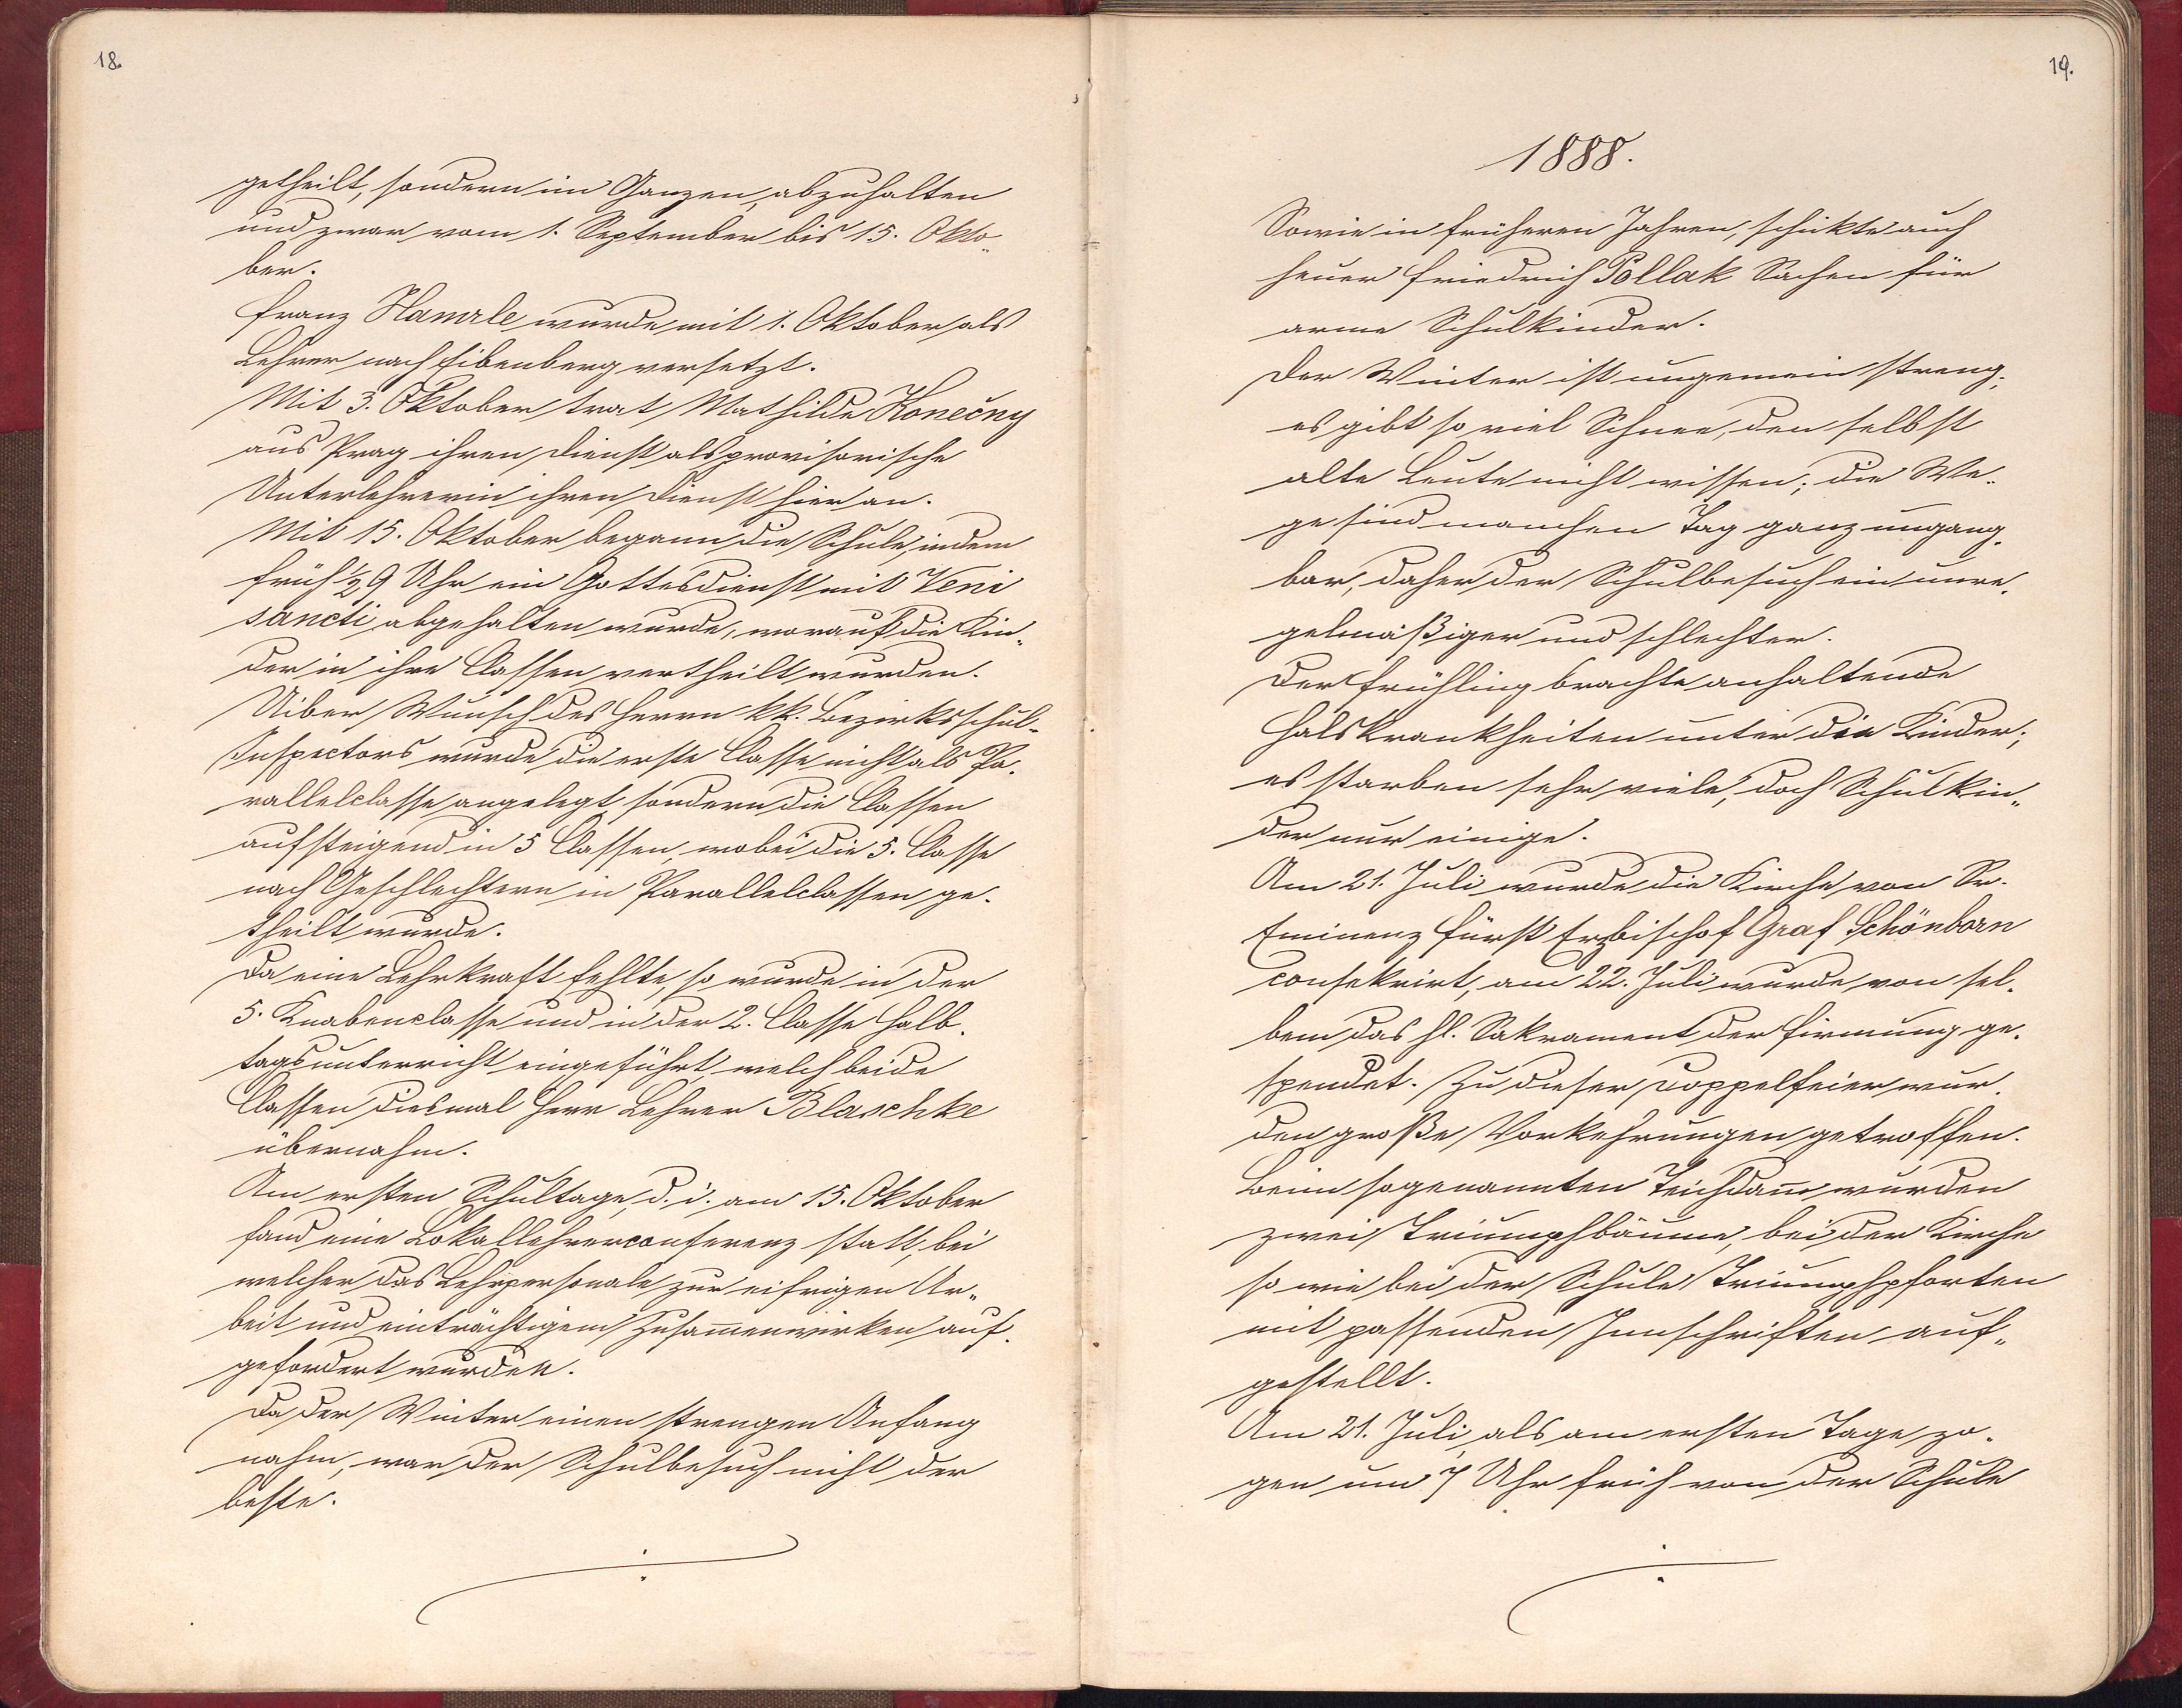 18.
getheilt, sondern im Ganzen, abzuhalten
und zwar vom 1. September bis 15. Okto„
ber.
Franz Hamrle wurde mit 1. Oktober als
Lehrer nach Eibenberg versetzt.
Mit 3. Oktober trat Mathilde Konečny
aus Prag ihren Dienst als provisorische
Unterlehrerin ihren Dienst hier an.
Mit 15. Oktober begann die Schule, indem
früh ½9 Uhr ein Gottesdienst mit Veni
sancti abgehalten wurde, worauf die Kin„
der in ihre Classen vertheilt wurden.
Uiber Wunsch des Herrn kk. Bezirksschul„
Inspectors wurde die erste Classe nicht als Pa„
rallelclasse angelegt, sondern die Classen
aufsteigend in 5 Classen, wobei die 5. Classe
nach Geschlechtern in Parallelclassen ge„
theilt wurde.
Da eine Lehrkraft fehlte, so wurde in der
5. Knabenclasse und in der 2. Classe Halb„
tagsunterricht eingeführt, welch beide
Classen diesmal Herr Lehrer Blaschke
übernahm.
Am ersten Schultage, d. i. am 15. Oktober
fand eine Lokallehrerconferenz statt, bei
welcher das Lehrpersonale zur eifrigen Ar„
beit und einträchtigem Zusam̅enwirken auf„
gefordert wurden.
Da der Winter einen strengen Anfang
nahm, war der Schulbesuch nicht der
beste.
19.
1888.
Sowie in früheren Jahren, schikte auch
heuer Friedrich Pollak Sachen für
arme Schulkinder.
Der Winter ist ungemein streng;
es gibt so viel Schnee, den selbst
alte Leute nicht wissen; die We„
ge sind manchen Tag ganz ungang„
bar, daher der Schulbesuch ein unre„
gelmäßiger und schlechter.
Der Frühling brachte anhaltende
Halskrankheiten unter die Kinder;
es starben sehr viele, doch Schulkin„
der nur einige.
Am 21. Juli wurde die Kirche von Sr.
Eminenz Fürst Erzbischof Graf Schönborn
consekrirt, am 22. Juli wurde von sel„
bem das hl. Sakrament der Firmung ge„
spendet. Zu dieser Doppelfeier wur„
den große Vorkehrungen getroffen.
Beim sogenannten Teichdam̅ wurden
zwei Triumphbäume, bei der Kirche
so wie bei der Schule Triumphpforten
mit passenden Innschriften auf„
gestellt.
Am 21. Juli, als am ersten Tage zo„
gen um 7 Uhr früh von der Schule